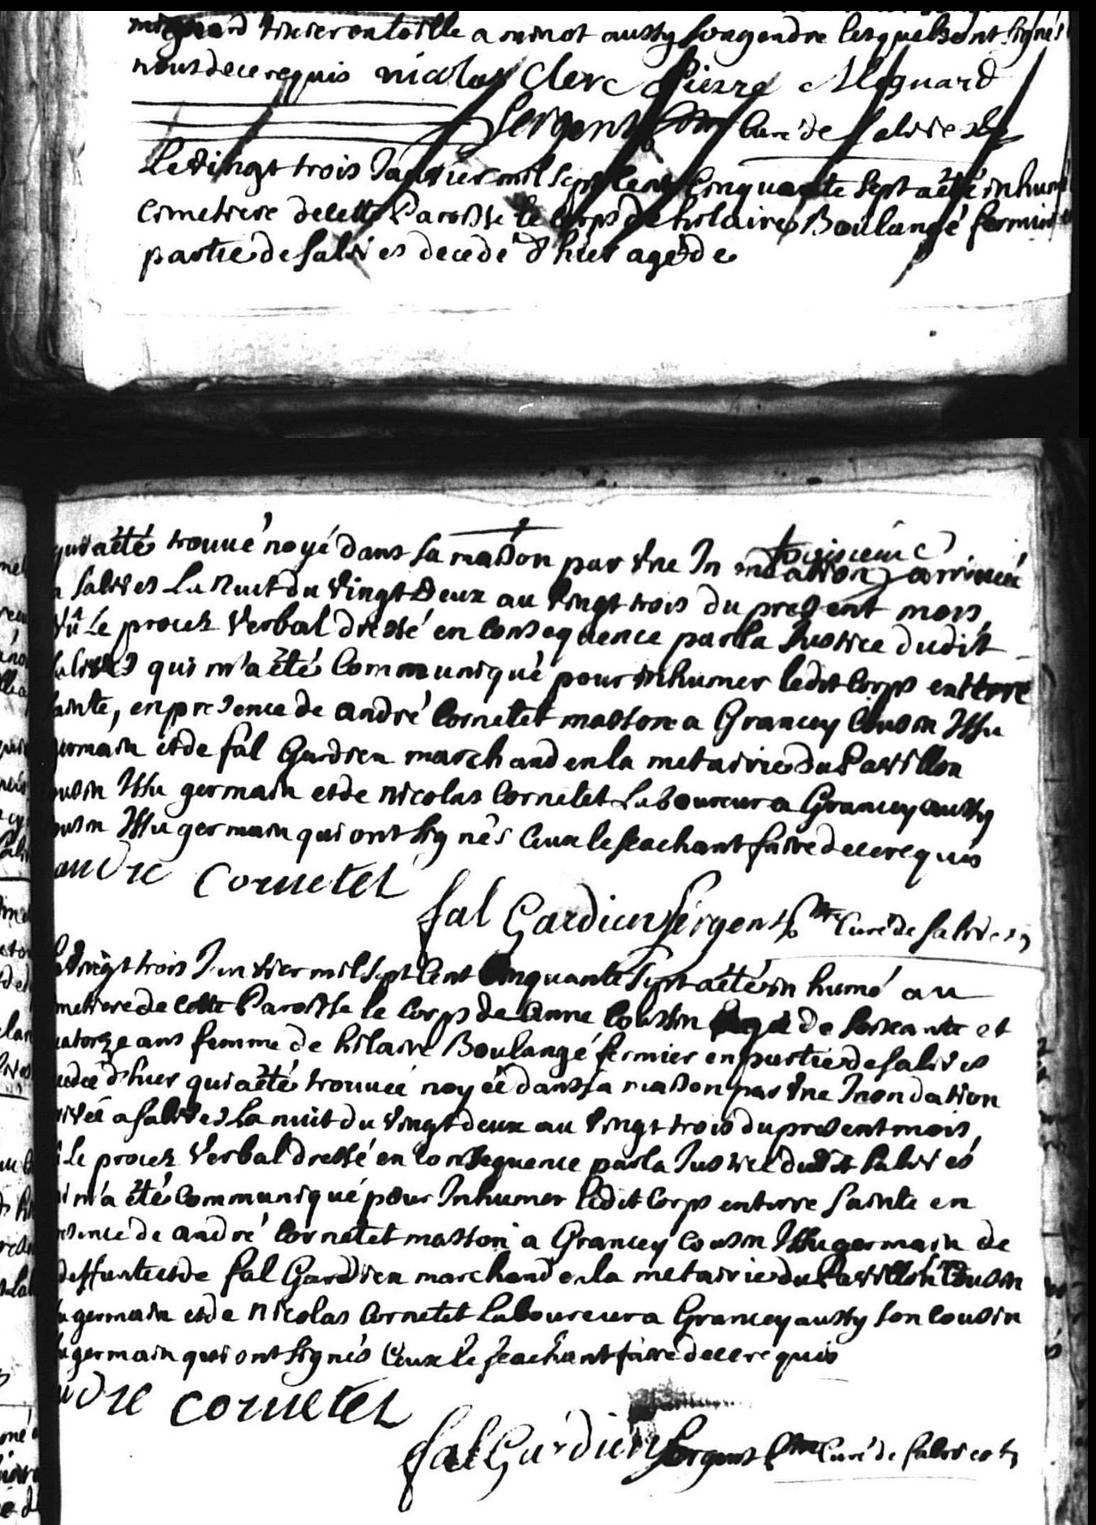 mignard tixier en toille a minot aussy son gendre lesquels ont signés
nous de ce requis nicolas Clerc Pierre Mignard
Sergent ptre Curé de Salives
Le vingt trois Janvier mil sept Cent Cinquante Sept a été inhumé
Cimetiere de cette Paroisse le Corps de hilaire Boulangé fermier
partie de Salives decedé d'hier agé de
qui a été trouvé noyé dans sa maison par une In ondation arrivée
a Salives La Nuit du Vingt Deux au Vingt trois du present mois,
Vû Le procez Verbal dressé en Consequence par la Justice dudit
Salives qui m'a été Communiqué pour inhumer ledit Corps en terre
sainte, en presence de andré Cornetet masson a Grancey Cousin Issu
germain et de fal Gardien marchand en la metairie du Pavillon
Cousin Issu germain et de nicolas Cornetet Laboureur a Grancey aussy
Cousin Issu germain qui ont signés Ceux le scachant faire de ce requis
andre cornetet
fal Gardien Sergent ptre Curé de Salives
Le Vingt trois Janvier mil sept Cent Cinquante Sept a été in humé au
metiere de cette Paroisse le Corps de anne Cousin agée de soixante et
quatorze ans femme de hilaire Boulangé fermier en partie de Salives
decedée d'hier qui a été trouvée noyée dans sa maison par une Inondation
arrivée a Salives La nuit du Vingt deux au Vingt trois du present mois,
Vû Le procez Verbal dressé en Consequence par la Justice dudit Salives
qui m'a été Communiqué pour Inhumer ledit Corps en terre Sainte en
presence de andré Cornetet masson a Grancey Cousin Issu germain de
deffunte et de fal Gardien marchand en la metairie du Pavillon Cousin
Issu germain et de nicolas Cornetet Laboureur a Grancey aussy son Cousin
Issu germain qui ont signés Ceux le scachant faire de ce requis
andre cornetet
fal Gardien Sergent ptre Curé de Salives